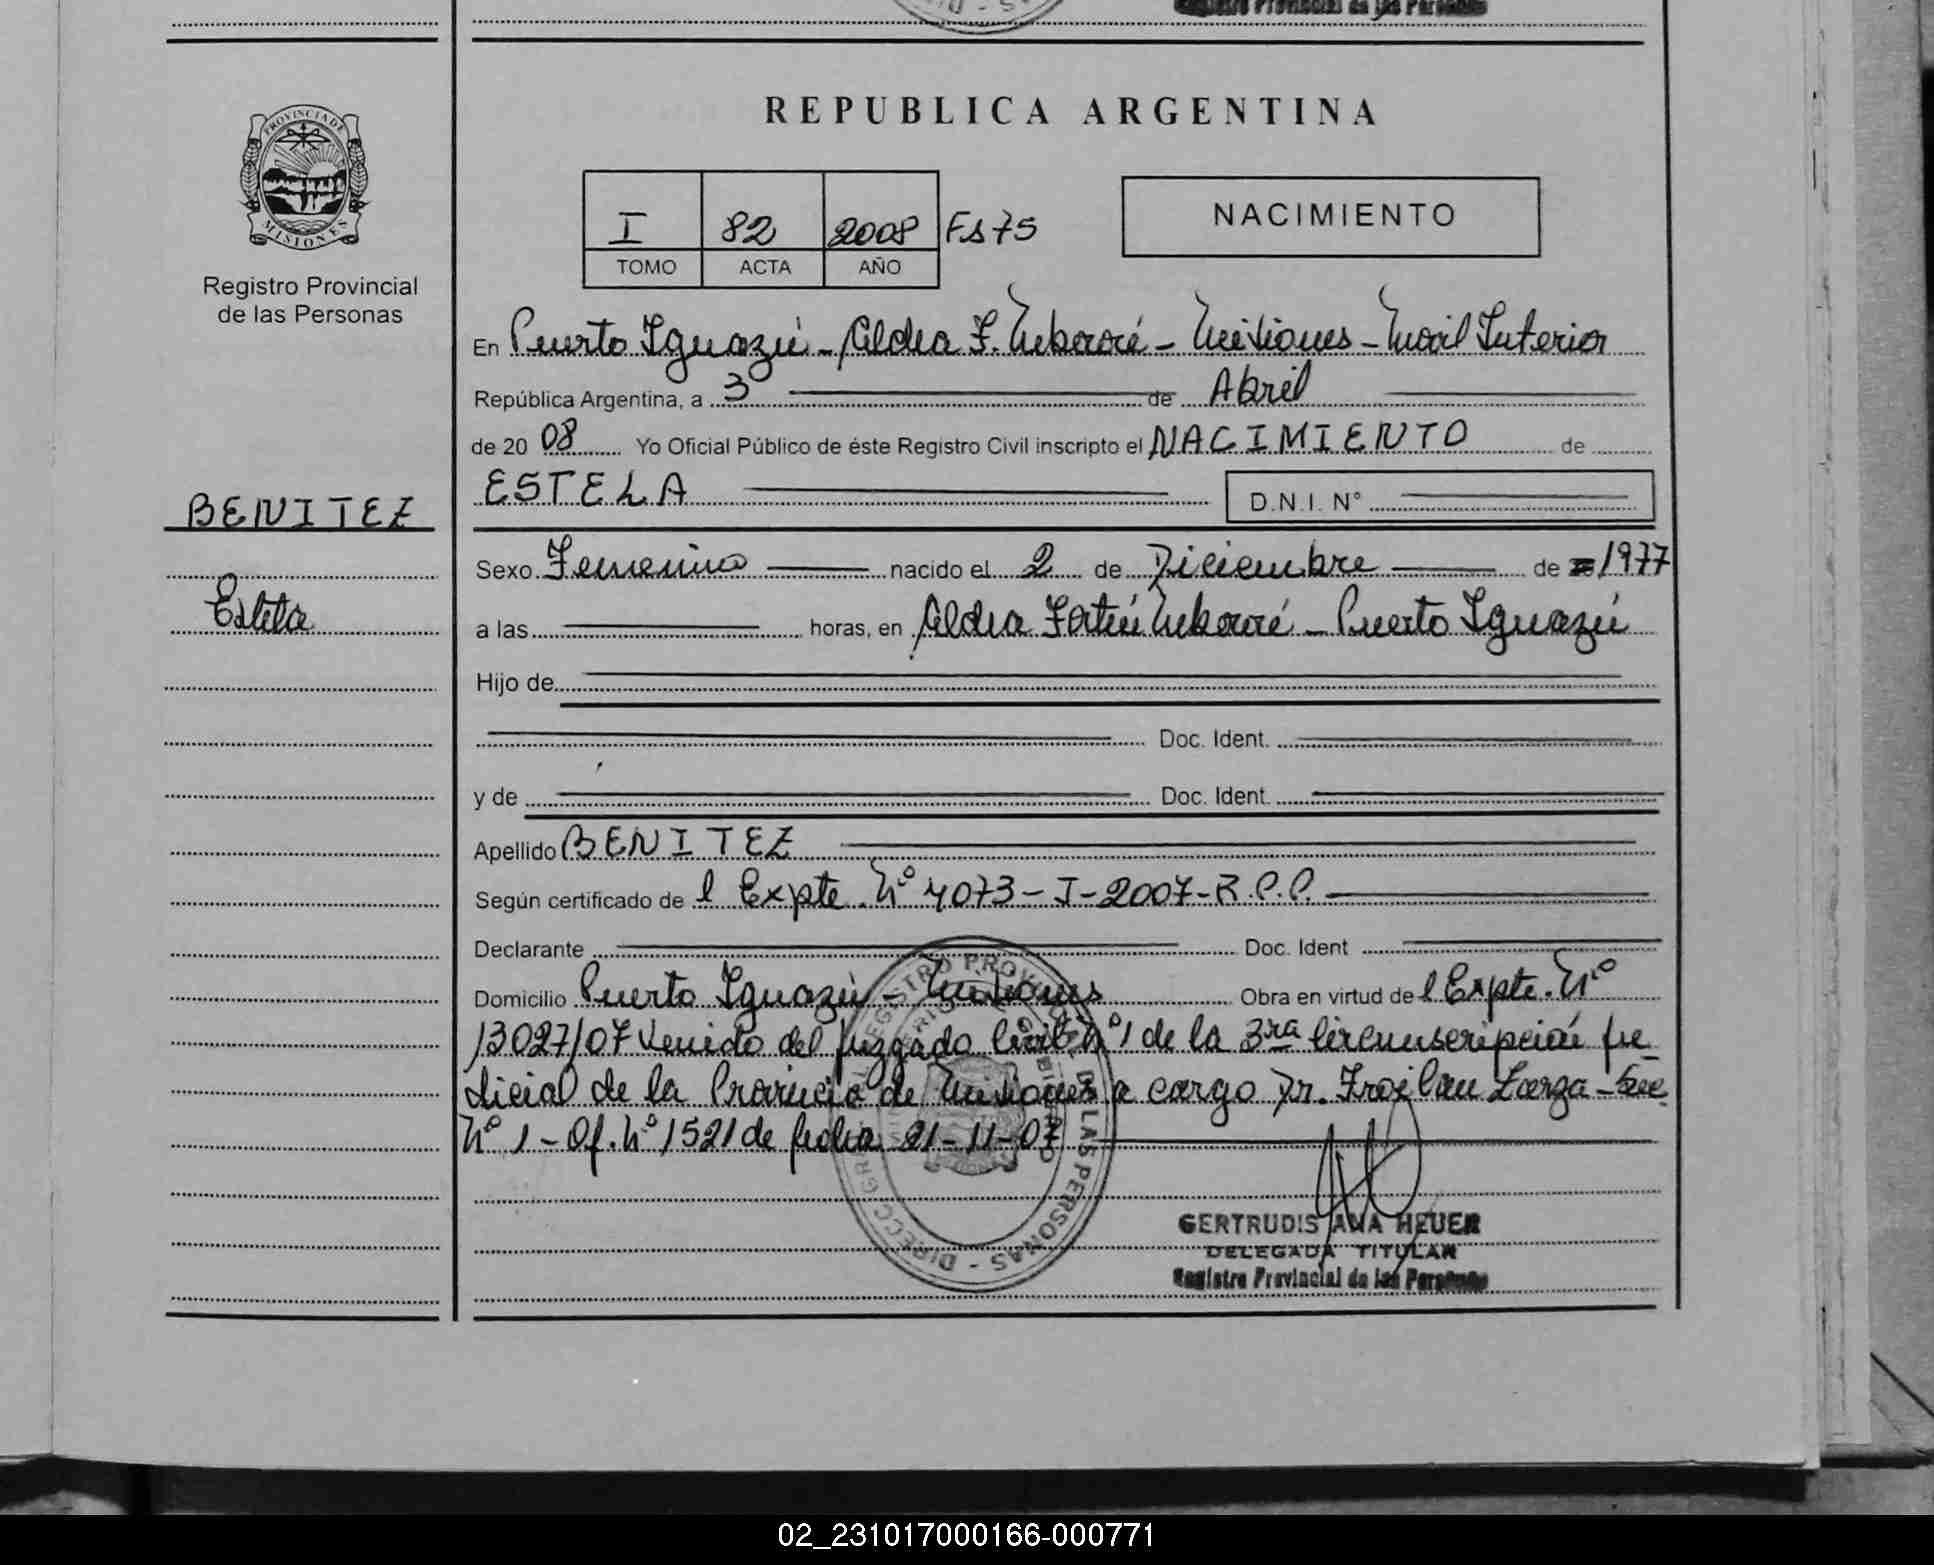 Registro Provincial de las Personas
REPUBLICA ARGENTINA
PROVINCIA DE
MISIONES
Registro Provincial
de las Personas
I 82 2008 Fs 75
TOMO ACTA AÑO
NACIMIENTO
En Puerto Iguazú - Aldea F. Mbororé - Misiones - Movil Interior
República Argentina, a 3 de Abril
de 20 08 Yo Oficial Público de éste Registro Civil inscripto el NACIMIENTO de
ESTELA D.N.I. N°
BENITEZ
Estela
Sexo Femenino nacido el 2 de Diciembre de 1977
a las horas, en Aldea Fortín Mbororé - Puerto Iguazú
Hijo de
Doc. Ident.
y de Doc. Ident.
Apellido BENITEZ
Según certificado de l Expte. N° 4073-I-2007-R.P.P.
Declarante Doc. Ident
Domicilio Puerto Iguazú - Misiones Obra en virtud de l Expte. N°
13027/07 Venido del Juzgado Civil N°1 de la 3ra Circunscripción Ju-
dicial de la Provincia de Misiones a cargo Dr. Froilan Zarza - Sec
N° 1 - Of. N° 1521 de fecha 21-11-07
GERTRUDIS ANA HEUER
DELEGADA TITULAR
Registro Provincial de las Personas
02_231017000166-000771